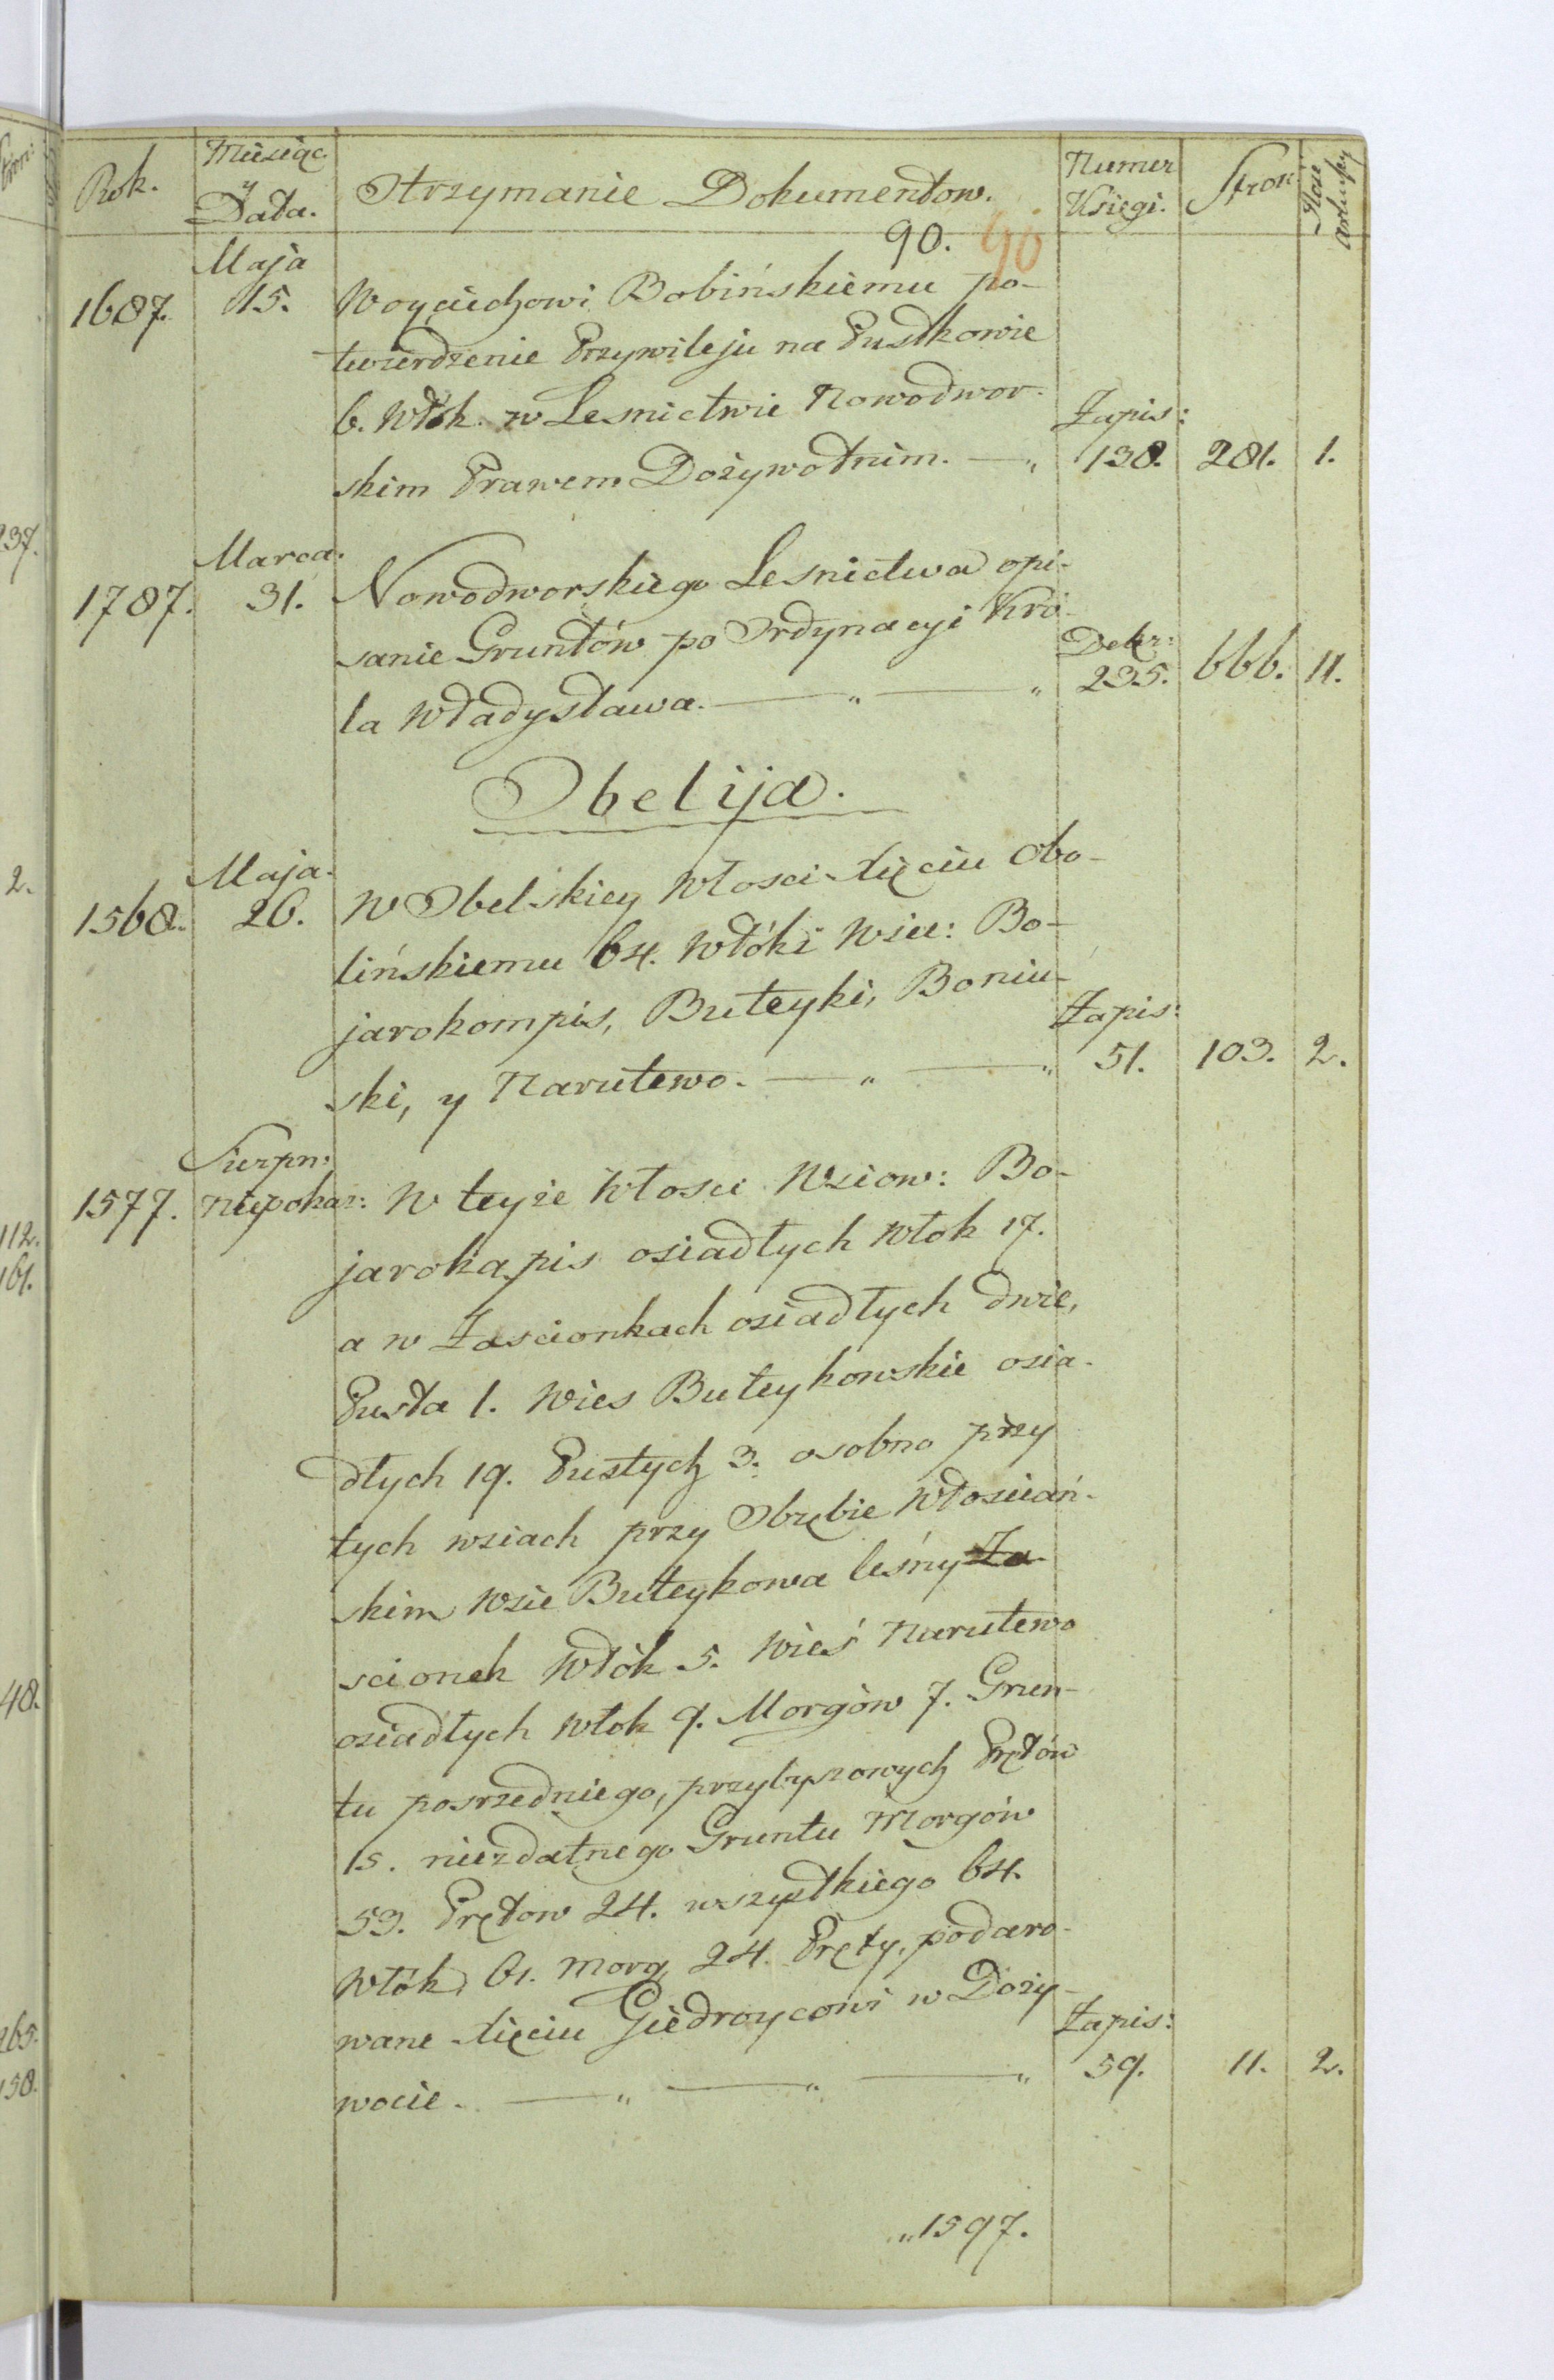 Rok.
Miesiąc
y
Data.
Otrzymanie Dokumentow.
Numer
Księgi.
Stron
Ilość
arkuszy
90. 90
Maja
1687. 15. Woyciechowi Bobińskiemu po-
twierdzenie Przywileju na Pustkowie
6. Włok. w Lesnictwie Nowodwor-
Zapis:
skim Prawem Dożywotnim. — „ 138. 281. 1.
Marca.
1787. 31. Nowodworskiego Lesnictwa opi-
sanie Gruntów po Ordynacyi Kró-
Dekr:
la Władysława. — „ — „ 235. 666. 11.
Obelija.
Maja.
1568. 26. W Obelskiey Włosci Xięciu Obo-
lińskiemu 64. Włóki Wsie: Bo-
jarokompis, Buteyki, Boniu-
Zapis:
ski, y Narutewo. — „ — „ 51. 103. 2.
Sierpn:
1577. Niepokaz: W teyże Włosci Wsiow: Bo-
jarokapis osiadłych Włok 17.
a w Zascionkach osiadłych dwie,
Pusta 1. Wies Buteykowskie osia-
dłych 19. Pustych 3. osobno przy
tych wsiach przy Obrębie Włosciań-
skim Wsie Buteykowa leśny Za-
scionek Włók 5. Wieś Narutewo
osiadłych Włok 9. Morgów 7. Grun-
tu posrzedniego, przybyszowych Prętów
15. niezdatnego Gruntu Morgów
53. Prętow 24. wszystkiego 64.
Włók, 61. morg, 24. Pręty, podaro-
wane Xięciu Giedroycowi w Doży-
Zapis:
wocie. — „ — „ — „ 59. 11. 2.
„1597.
237.
2.
112.
161.
48.
265.
158.